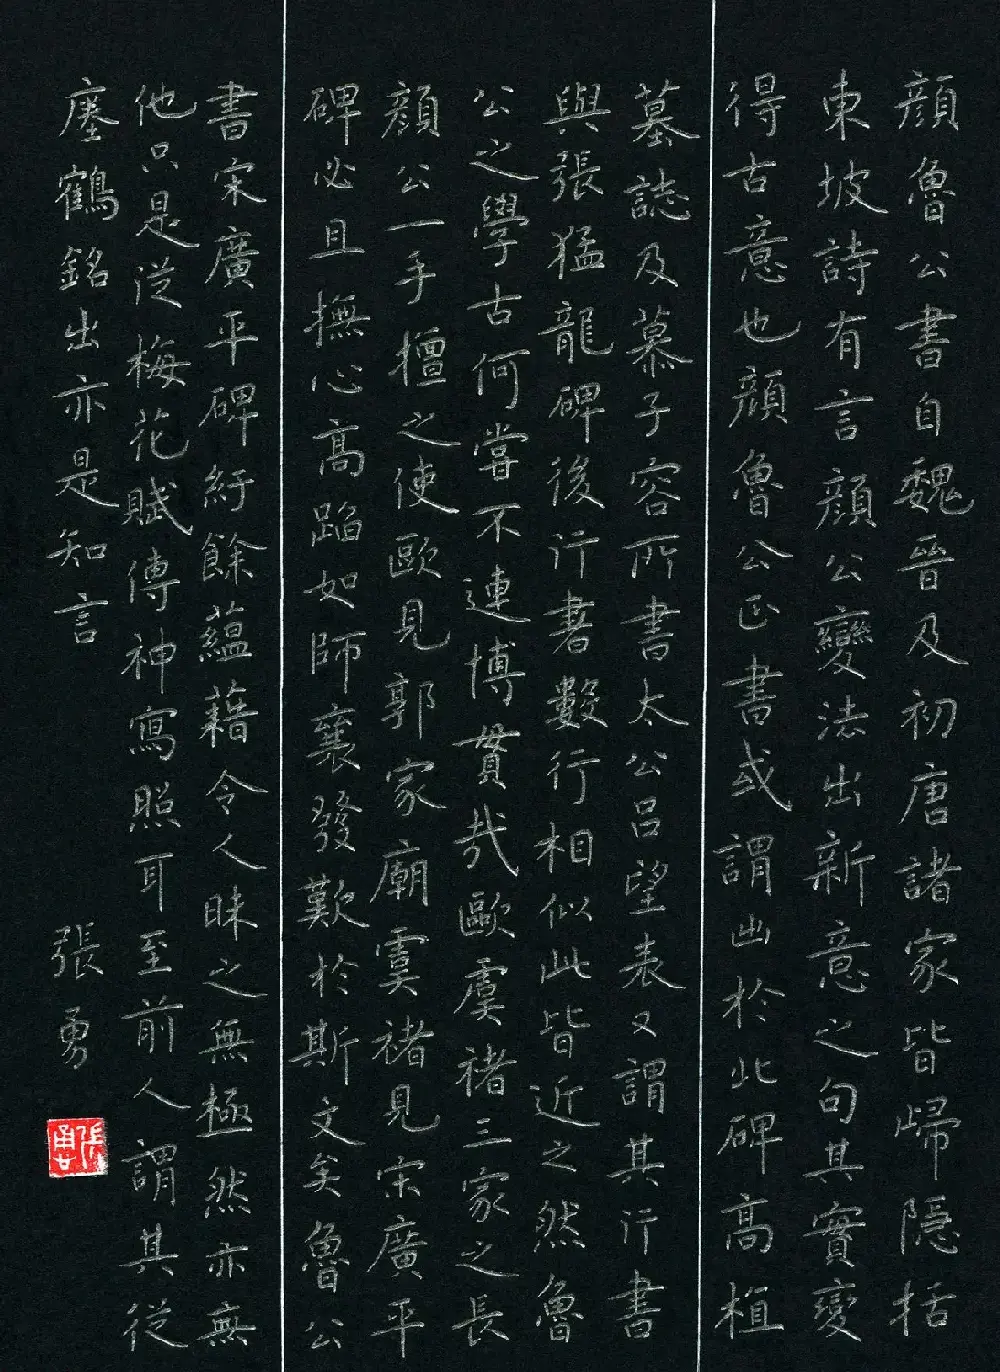 顔魯公書自魏晉及初唐諸家皆歸隠括
東坡詩有言顔公變法出新意之句其實變
得古意也顔魯公正書或謂出於北碑高植
墓誌及慕子容所書太公呂望表又謂其行書
與張猛龍碑後行書數行相似此皆近之然魯
公之學古何嘗不連博貫哉歐虞褚三家之長
顔公一手擅之使歐見郭家廟虞褚見宋廣平
碑必且撫心高蹈如師襄發歎於斯文矣魯公
書宋廣平碑紆餘蘊藉令人味之無極然亦無
他只是從梅花賦傳神寫照耳至前人謂其從
瘞鶴銘出亦是知言
張勇
張勇